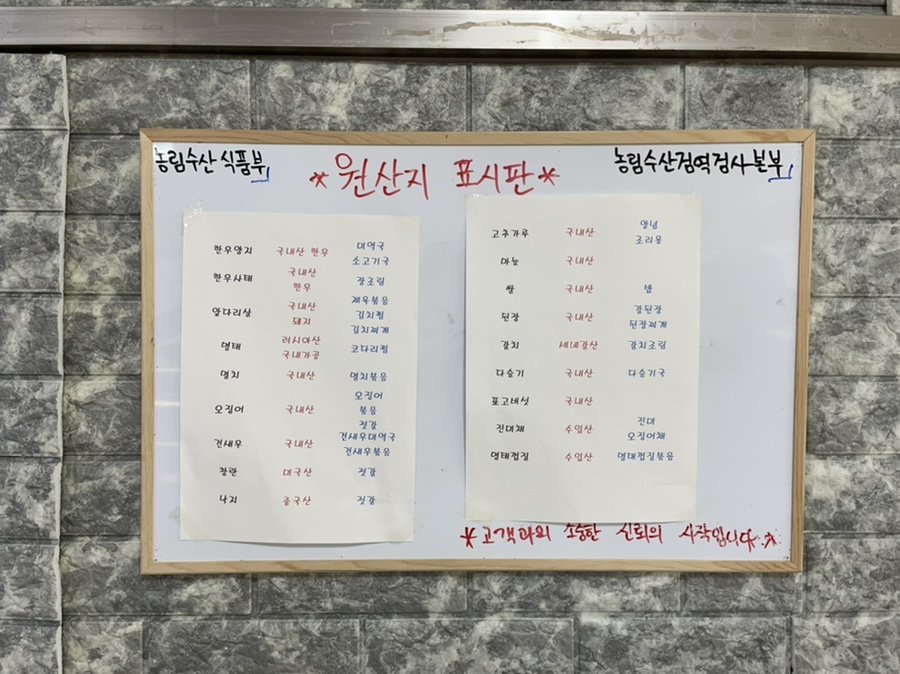 농림수산 식품부
*원산지 표시판*
농림수산검역검사본부
한우양지 국내산 한우 미역국
소고기국
한우사태 국내산 장조림
한우
앞다리살 국내산 제육볶음
돼지 김치찜
김치찌개
명태 러시아산 코다리찜
국내가공
멸치 국내산 멸치볶음
오징어 국내산 오징어
볶음
젓갈
건새우 국내산 건새우미역국
건새우볶음
창란 미국산 젓갈
낙지 중국산 젓갈
고추가루 국내산 양념
조리용
마늘 국내산
쌀 국내산 밥
된장 국내산 강된장
된장찌개
갈치 세네갈산 갈치조림
다슬기 국내산 다슬기국
표고버섯 국내산
진미채 수입산 진미
오징어채
명태껍질 수입산 명태껍질볶음
*고객과의 소중한 신뢰의 시작입니다.*